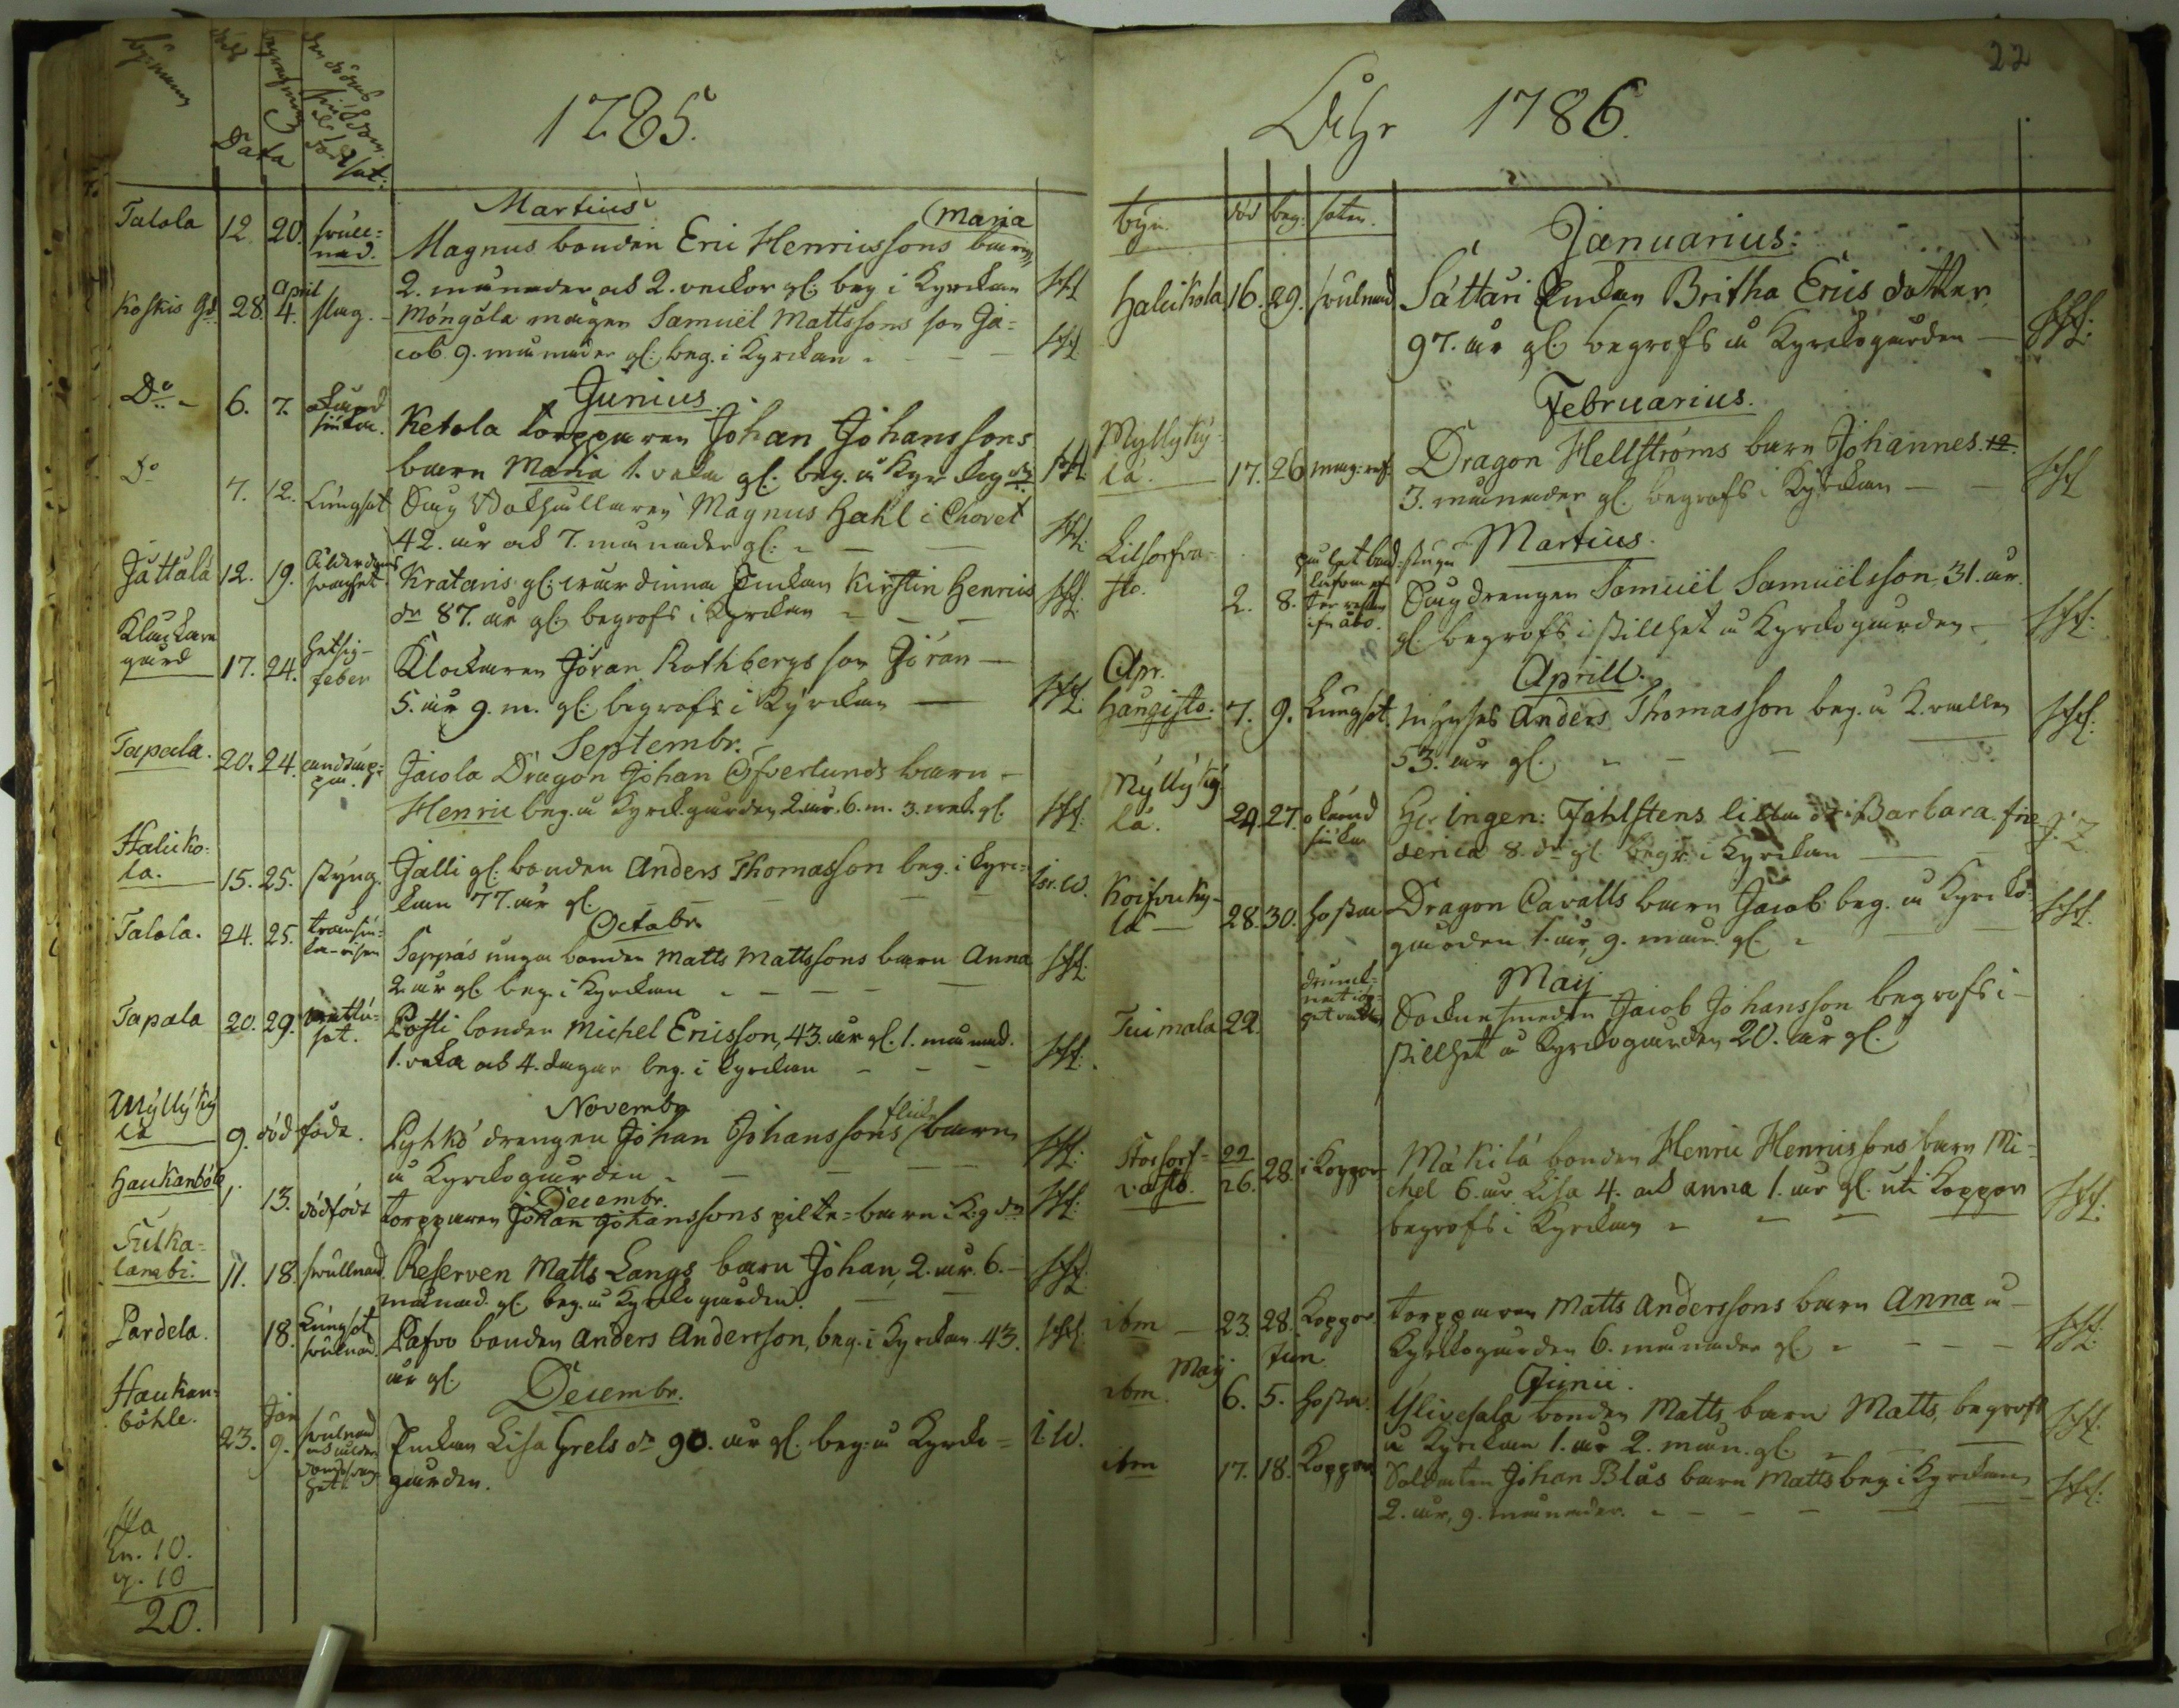 byarnans
död
begrafning
Data
1785.
Martius
Talola 12. 20. svull=
nad. Magnus bonden Eric Henricssons barn
(Maria
2. månader och 2. veckor gl: beg i Kyrckan
Koskis Gd. 28. April 4. slag. Möngölä mågen Samuel Mattssons son Ja=
cob 9. månader gl: beg. i Kyrckan
Junius.
Do 6. 7. okänd
siuka. Ketola torpparen Johan Johanssons
barn Maria 1. veka gl: beg. å Kyrckog dn
Do 7. 12. Lungsot Magnus Hahl i Chovet
42. år och 7. månader gl:
Jättälä 12. 19. Ålderdoms
svaghet Krataris gl: värdinna Enckan Kirstin Henrics
dr 87. år gl: begrofs i Kyrckan
Kluckare
gård 17. 24. Hetsig
feber Klockaren Jöran Rothbergs son Jöran
5. år 9. m. gl: begrofs i Kyrckan
Septembr.
Tapala. 20. 24. Jacola Dragon Johan Öfverlunds barn
Henric beg. å Kyrckgården 2. år. 6. m. 3. vek. gl.
Haliko=
la. 15. 25. styng. Jälli gl: bonden Anders Thomasson beg. i Kyrc=
kan 77. år gl. Is. W.
Octobr.
Talola. 24. 25. Seppäs unga bonden Matts Mattssons barn Anna
2. år gl. beg. i Kyrckan
Tapala 20. 29. vattu=
sot. Påsti bonden Michel Ericsson, 43. år gl. 1. månad.
1. veka och 4. dagar beg. i Kyrckan
Novembr.
Myllyky
lä 9. död föde. Lyhkö drengen Johan Johanssons flicke barn
å Kyrckogården
Decembr.
Haukanböle 1. 13. dödfödt torpparen Johan Johanssons pilte=barn i K:g dn
Sulka=
lambi. 11. 18. svullnad. Reserven Matts Langs barn Johan, 2. år. 6.
månad. gl. beg. å Kyrckogården.
Pardela. 18. Lungsot
svulnad. Pafvo bonden Anders Andersson, beg. i Kyrckan 43.
år gl.
Decembr.
Haukan=
böhle. 23. Jan 9. svulnad
och ålder
domssvag
het Enckan Lisa Grels dr 90. år gl. beg: å Kyrcko=
gården. I. W.
Sa
kn. 10.
q. 10
20.
22
Åhr 1786.
byn. död beg. soten.
Januarius:
Halikola 16. 29. svulnad Sättäri Enckan Britha Erics dotter
97. år gl: begrofs å Kyrckogården
Februarius.
Myllyky=
lä. 17. 26. mag: ref. Dragon Hellströms barn Johannes.
3. månader gl. begrofs i Kyrckan
Martius.
Lilsorfva=
sto. 2. 8. drengen Samuel Samuelsson, 31. år.
gl begrofs i stillhet å Kyrckogården
Aprill.
Apr.
Haugisto. 7. 9. Lungsot. Inhyses Anders Thomasson beg. å K.vallen
53. år gl.
Myllyky
lä. 24. 27. okänd
siuka Hr Ingen: Fahlstens lilla dr Barbara frie
derica 8. dr gl. begr. i Kyrckan
Koifvuky=
lä 28. 30. hosta Dragon Cavalls barn Jacob beg. å Kyrcko
gården 1. år, 9. mån. gl.
Maij
Tuimala 22. Sockne smeden Jacob Johansson begrofs i
stillhet å Kyrckogården 20. år gl.
Storsorf=
vasto. 22
26. 28. i Koppor Mäkilä bonden Henric Henricssons barn Mi=
chel 6. år Lisa 4. och Anna 1. år gl. uti Koppor
begrofs i Kyrckan
ibm 23. 28. Koppor torpparen Matts Anderssons barn Anna å
Kyrckogården 6. månader gl.
Junii.
ibm. Maij 6. Jun. 5. hosta. Ylivesala bonden Matts barn Matts, begrofs
å Kyrckan 1. år 2. mån. gl.
ibm 17. 18. Koppor Soldaten Johan Blås barn Matts beg. i Kyrckan
2. år, 9. månader.